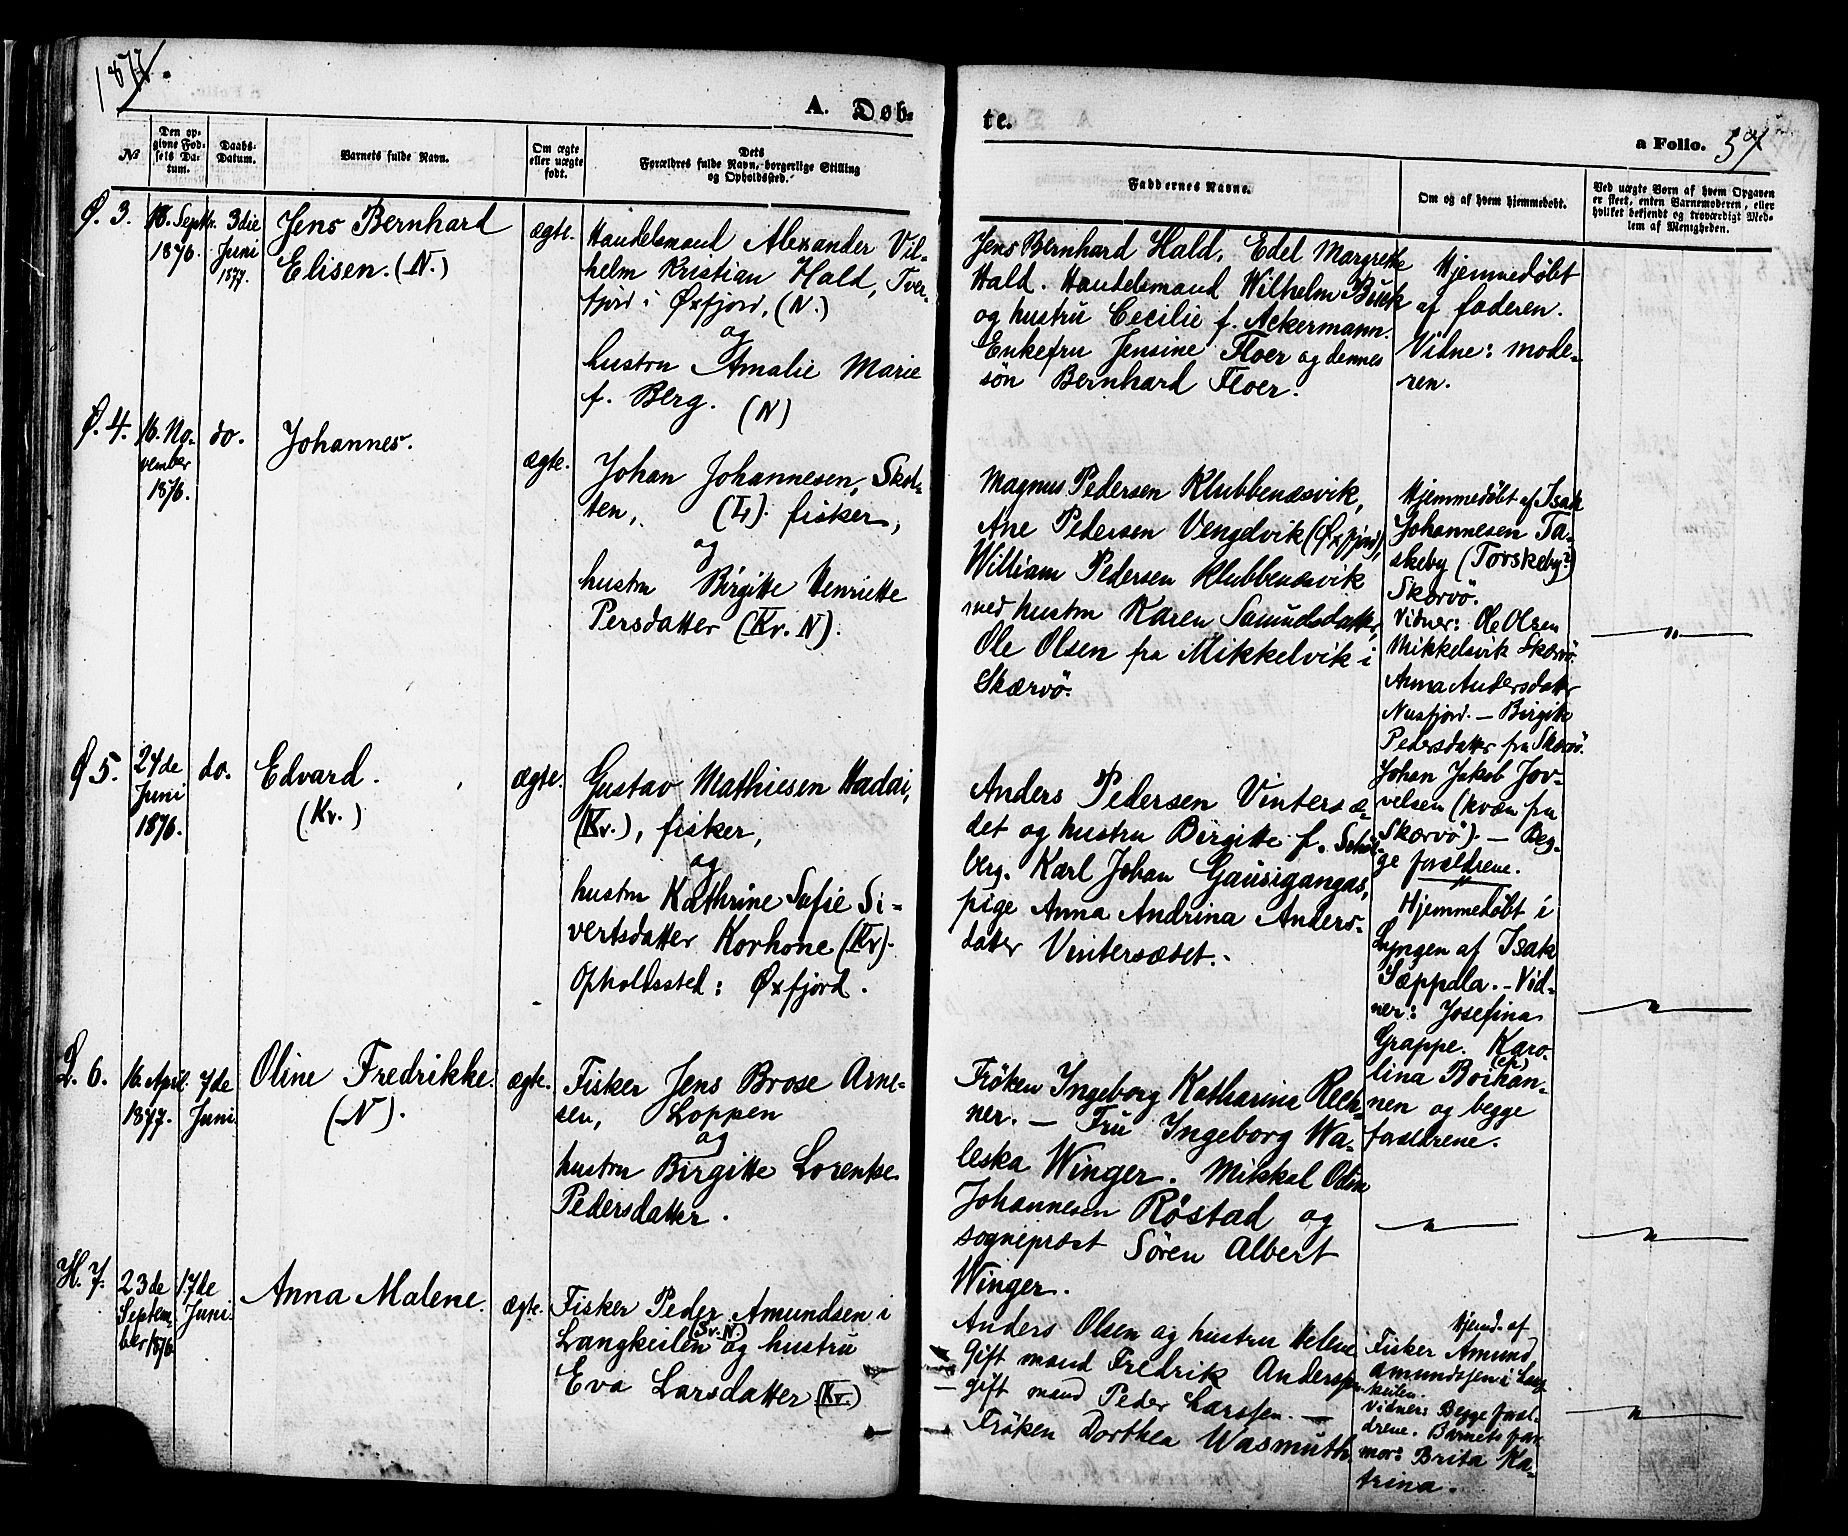 1877.
A. Døb-
te.
a Folio. 57
No
Den op-
givne Fød-
sels Da-
tum.
Daabs-
Datum.
Barnets fulde Navn.
Om ægte
eller uægte
født.
Dets
Forældres fulde Navn, borgerlige Stilling
og Opholdssted.
Faddernes Navne.
Om og af hvem hjemmedøbt.
Ved uægte Børn af hvem Opgaven
er skeet, enten Barnemoderen, eller
hvilket bekjendt og troværdigt Med-
lem af Menigheden.
Ø. 3.
18. Septbr.
1876.
3die
Juni
1877.
Jens Bernhard
Elisen. (N.)
ægte.
Handelsmand Alexander Vil-
helm Kristian Hald, Tver-
fjord i Øxfjord, (N.)
og
hustru Amalie Marie
f. Berg. (N)
Jens Bernhard Hald, Edel Margrethe
Hald. Handelsmand Wilhelm Buck
og hustru Cecilie f. Ackermann.
Enkefru Jensine Floer og dennes
søn Bernhard Floer.
Hjemmedøbt
af faderen.
Vidne: mode-
ren.
Ø. 4.
16. No-
vember
1876.
do.
Johannes.
ægte.
Johan Johannesen, Skol-
ten, (L). fisker,
og
hustru Birgitte Henriette
Persdatter (Kv. N).
Magnus Pedersen Klubbenæsvik,
Ane Pedersen Vengdvik (Øxfjord),
William Pedersen Klubbenæsvik
med hustru Karen Samuelsdatter,
Ole Olsen fra Mikkelvik i
Skærvö.
Hjemmedöbt af Isak
Johannesen Ta-
skeby (Torskeby?)
Skærvö.
Vidner: Ole Olsen
Mikkelsvik Skærvö.
Anna Andersdatter
Nusfjord. - Birgitte
Pedersdatter fra Skærvö.
Johan Jakob Jov-
velsen (kvæn fra
Skærvö). - Beg-
ge forældrene.
Ø 5.
24de
Juni
1876.
do.
Edvard.
(Kv.)
ægte.
Gustav Mathiesen Hadai,
(Kv.), fisker,
og
hustru Kathrine Sofie Si-
vertsdatter Korhone (Kv).
Opholdssted: Øxfjord.
Anders Pedersen Vintersæ-
det og hustru Birgitte f. Schul-
berg. Karl Johan Gausigangas,
pige Anna Andrina Anders-
datter Vintersædet.
Hjemmedöbt i
Lyngen af Isak
Sæppäla. - Vid-
ner: Josefina
Grappe. Karo-
lina Boihan-
nen og begge
forældrene.
L. 6.
16. April.
1877.
7de
Juni.
Oline Fredrikke.
(N).
ægte.
Fisker Jens Brose Arne-
sen, Loppen
og
hustru Birgitte Lorentse
Pedersdatter.
Fröken Ingeborg Katharina Rech-
ner. - Fru Ingeborg Wa-
leska Winger. Mikkal Odin
Johannesen Röstad og
sognepræst Sören Albert
Winger.
H. 7.
23de
Septem-
ber 1876
17de
Juni.
Anna Malene.
ægte.
Fisker Peder Amundsen i
Langkeilen (Sv. N.) og hustru
Eva Larsdatter (Kv.)
Anders Olsen og hustru Helene
Gift mand Fredrik Anderssen
- gift mand Peder Larssen. -
Fröken Dorthea Wasmuth.
Hjemd. af
Fisker Amund
Amundssen i Lang-
keilen.
Vidner: Begge foræl-
drene. Barnets far-
mor: Brita Ka-
trina.